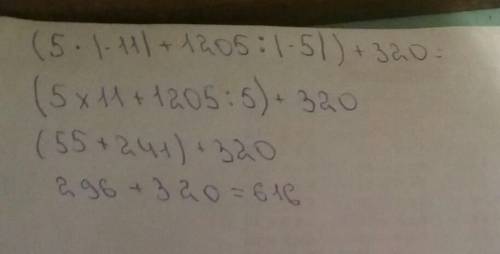 (5 · |-11| + 1205 : |-5|) + 320 =
(5 x 11 + 1205 : 5) + 320
(55 + 241) + 320
296 + 320 = 616